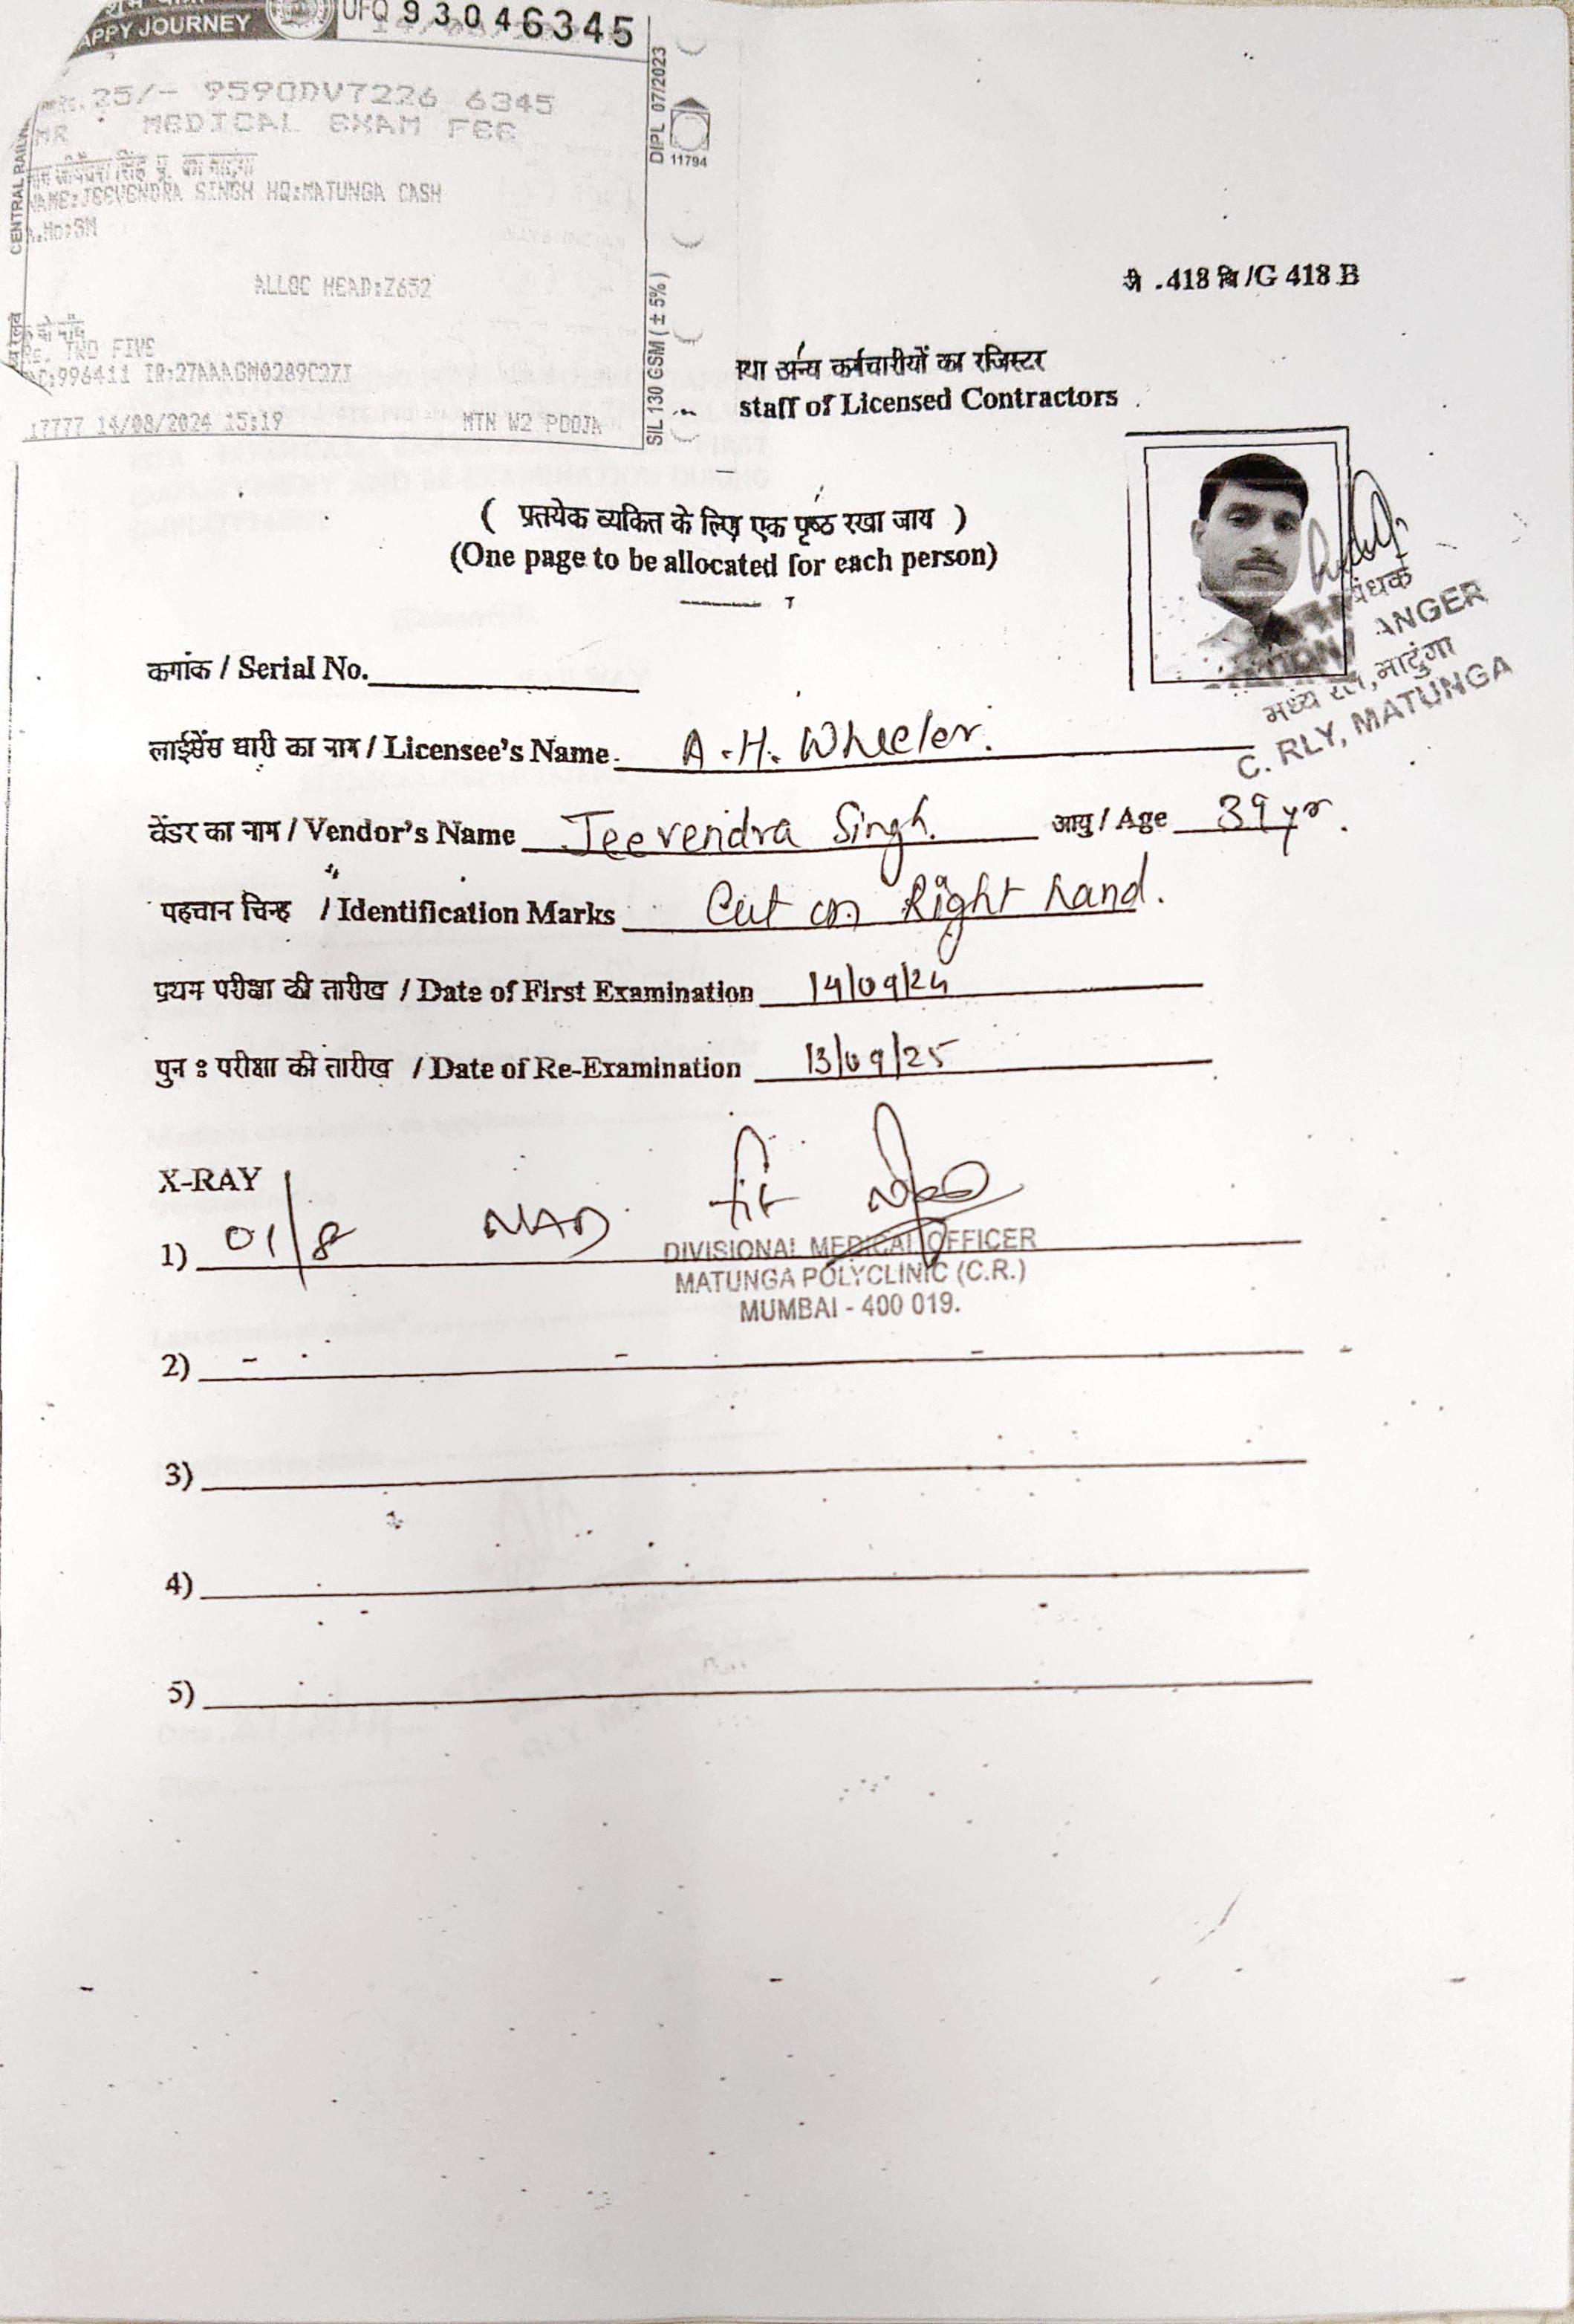 APPY JOURNEY
UFQ 93046345
25/- 9590DV7226 6345
MR MEDICAL EXAM FEE
NAME:JEEVENDRA SINGH HQ:MATUNGA CASH
A.No:SM
ALLOC HEAD:Z652
Rs. TWO FIVE
AC:996411 IR:27AAAGM0289C2ZI
17777 14/08/2024 15:19 MTN W2 POOJA
CENTRAL RAILW
DIPL 07/2023
11794
SIL 130 GSM ( ± 5% )
/G 418 B
अन्य कर्मचारीयों का रजिस्टर
staff of Licensed Contractors
( प्रतयेक व्यकित के लिए एक पृष्ठ रखा जाय )
(One page to be allocated for each person)
कगांक / Serial No.
लाईसेंस धारी का नाम / Licensee's Name A.H. Wheeler.
वेंडर का नाम / Vendor's Name Jeevendra Singh. आयु / Age 39 yr.
पहचान चिन्ह / Identification Marks Cut on Right hand.
प्रथम परीक्षा की तारीख / Date of First Examination 14/09/24
पुन : परीक्षा की तारीख / Date of Re-Examination 13/09/25
ANGER
मध्य रेल, माटुंगा
C. RLY, MATUNGA
X-RAY
1) 01/8 NAD fit
DIVISIONAL MEDICAL OFFICER
MATUNGA POLYCLINIC (C.R.)
MUMBAI - 400 019.
2)
3)
4)
5)